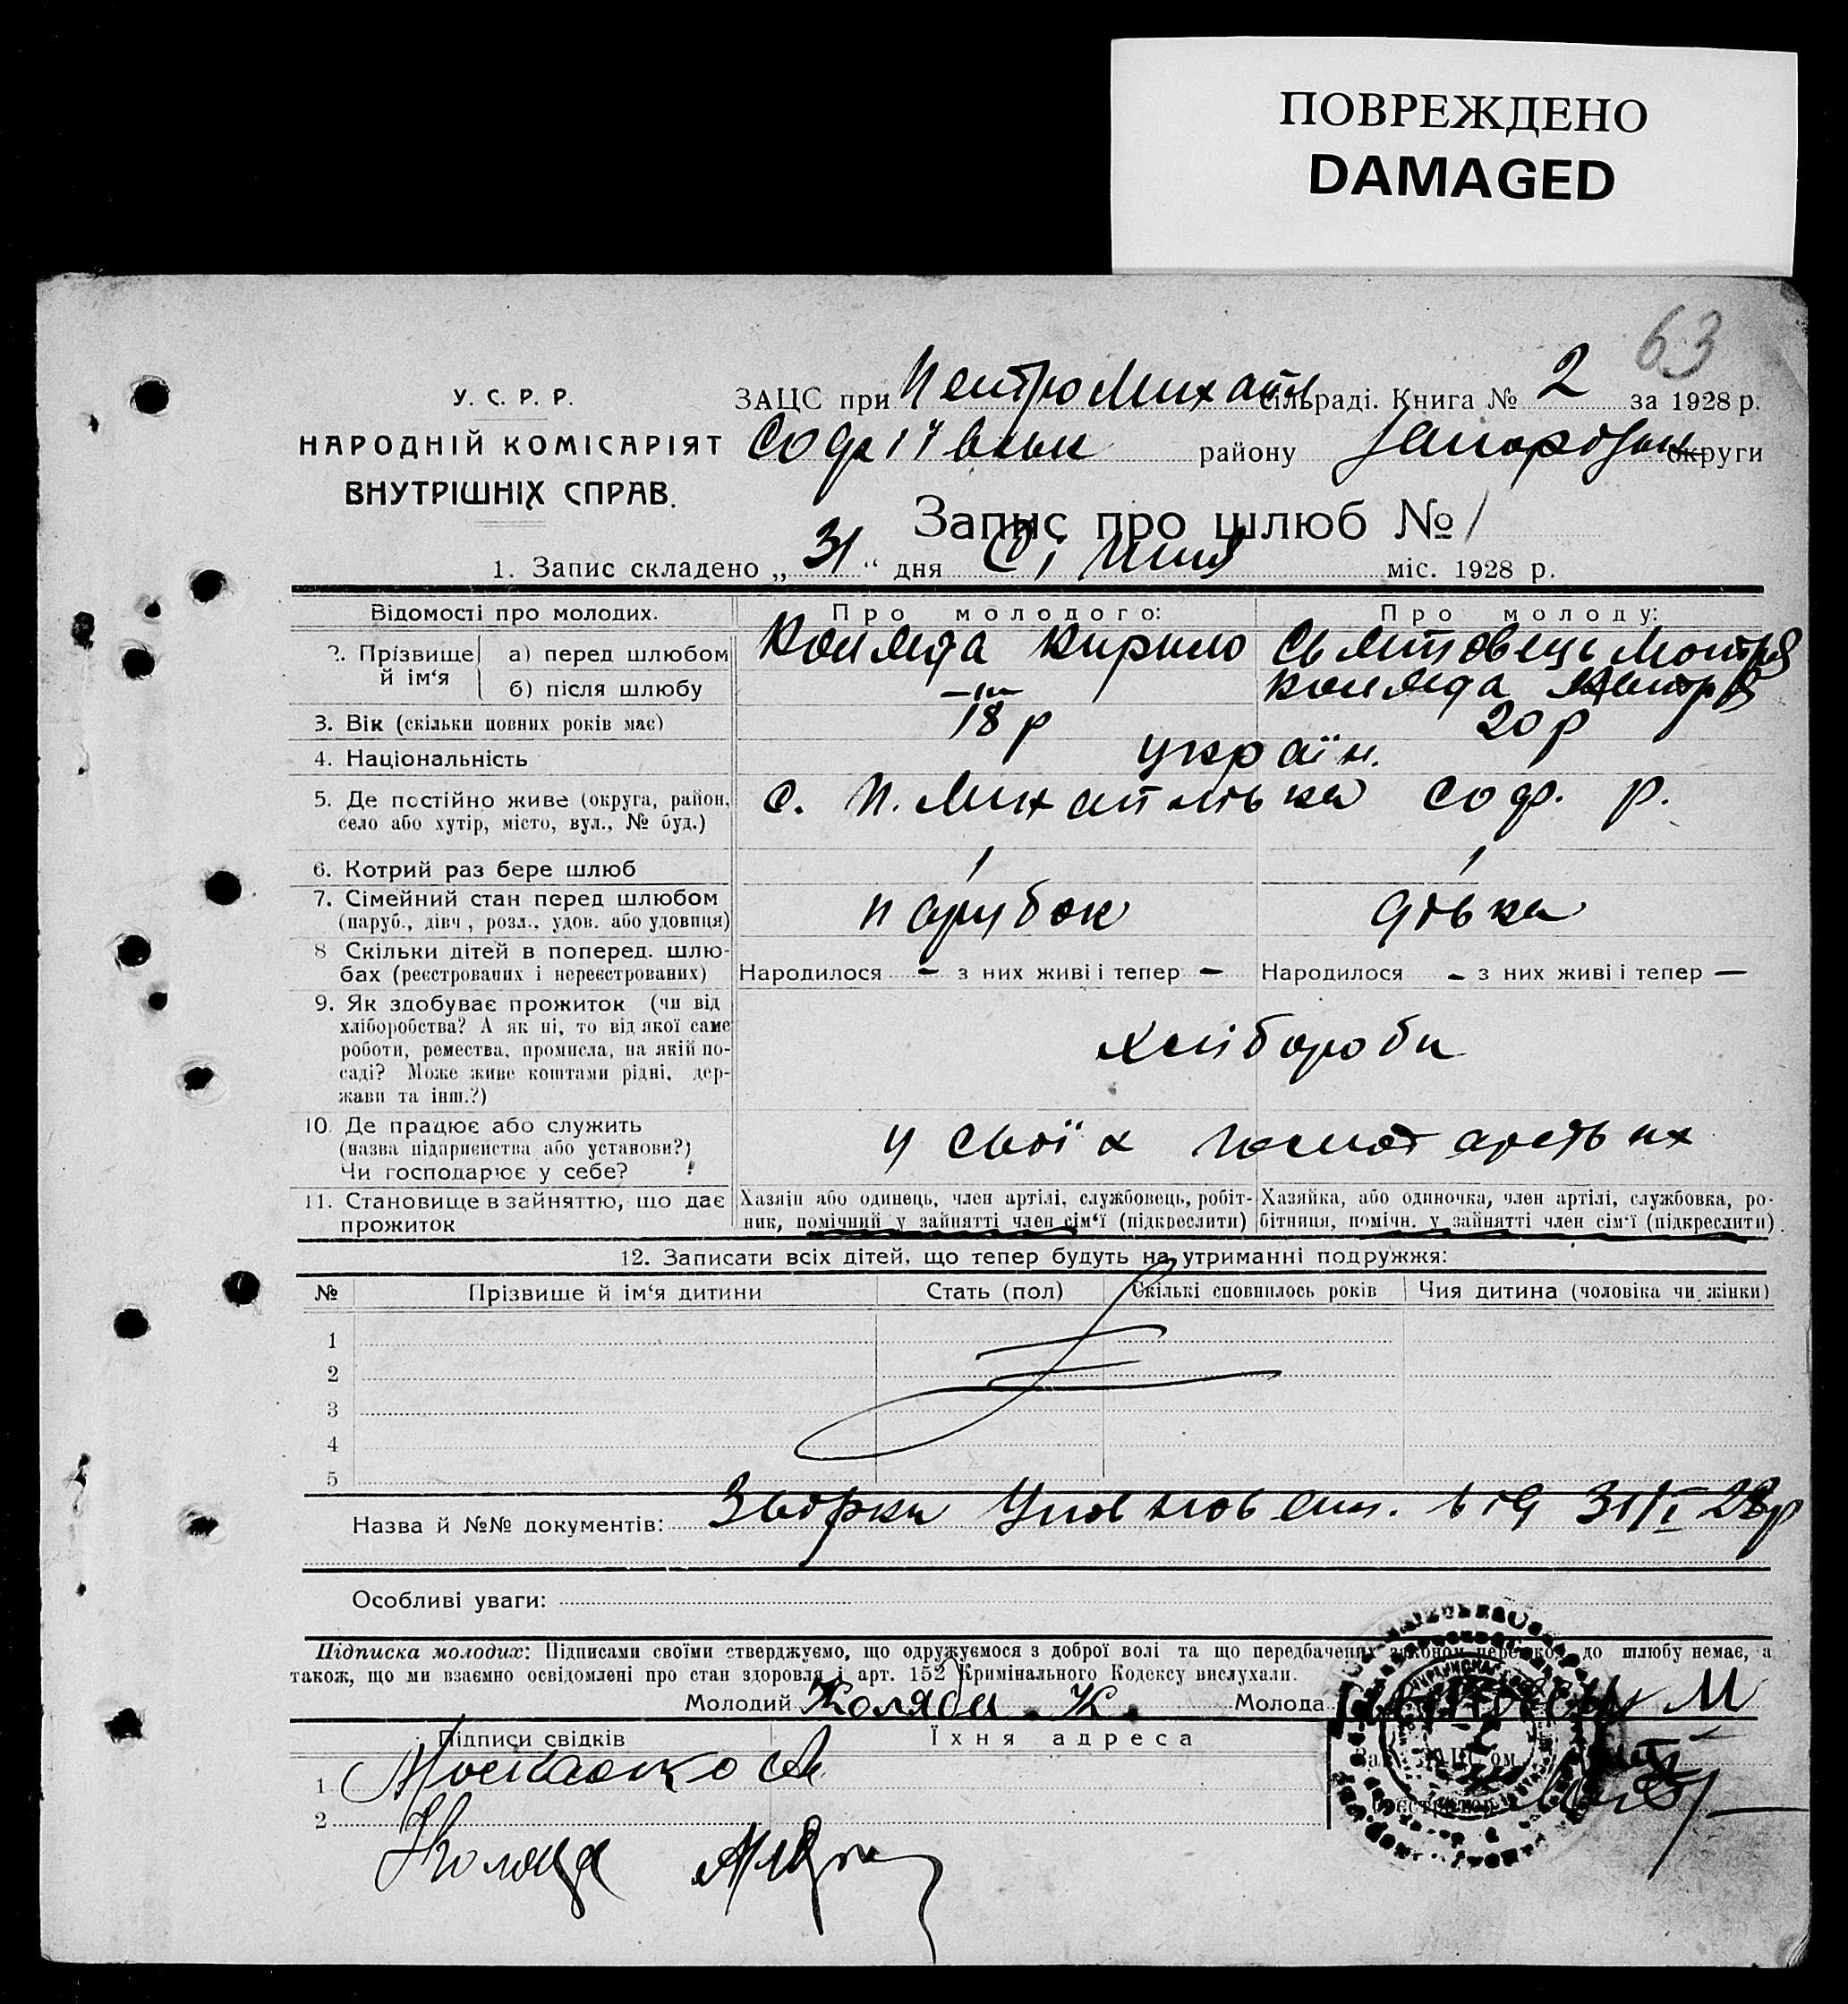 ПОВРЕЖДЕНО
DAMAGED
63
У. С. Р. Р.
НАРОДНІЙ КОМІСАРІЯТ
ВНУТРІШНІХ СПРАВ.
ЗАЦС при ПетроМихайл сільраді. Книга № 2 за 1928 р.
Софіївськ району Запорізьк округи
Запис про шлюб № 1
1. Запис складено „ 31 “ дня Січня міс. 1928 р.
Відомості про молодих. Про молодого: Про молоду:
2. Прізвище й ім‘я а) перед шлюбом Коляда Кирило Мотря
б) після шлюбу Коляда Мотря
3. Вік (скільки повних років має) 18 р 20 р
4. Національність україн.
5. Де постійно живе (округа, район, село або хутір, місто, вул., № буд.) с. П. Михайлівка Соф. р.
6. Котрий раз бере шлюб 1 1
7. Сімейний стан перед шлюбом (паруб., дівч., розл., удов. або удовиця) парубок дівка
8 Скільки дітей в поперед. шлюбах (реєстрованих і нереєстрованих) Народилося — з них живі і тепер — Народилося — з них живі і тепер —
9. Як здобуває прожиток (чи від
хліборобства? А як ні, то від якої саме
роботи, ремества, промисла, на якій по-
саді? Може живе коштами рідні, дер-
жави та інш.?)
хлібороби
10. Де працює або служить
(назва підприємства або установи?)
Чи господарює у себе?
у своїх
11. Становище в зайняттю, що дає
прожиток
Хазяїн або одинець, член артілі, службовець, робіт-
ник, помічний у зайнятті член сім‘ї (підкреслити)
Хазяйка, або одиночка, член артілі, службовка, ро-
бітниця, помічн. у зайнятті член сім‘ї (підкреслити).
12. Записати всіх дітей, що тепер будуть на утриманні подружжя:
№ Прізвище й ім‘я дитини Стать (пол) Скількі сповнилось років Чия дитина (чоловіка чи жінки)
1
2
3
4
5
Назва й №№ документів: від 31/I 28р
Особливі уваги:
Підписка молодих: Підписами своїми стверджуємо, що одружуємося з доброї волі та що передбачених законом перешкод до шлюбу немає, а
також, що ми взаємно освідомлені про стан здоровля і арт. 152 Кримінального Кодексу вислухали.
Молодий Коляда. К. Молода М
Підписи свідків Їхня адреса
1
2
Коляда